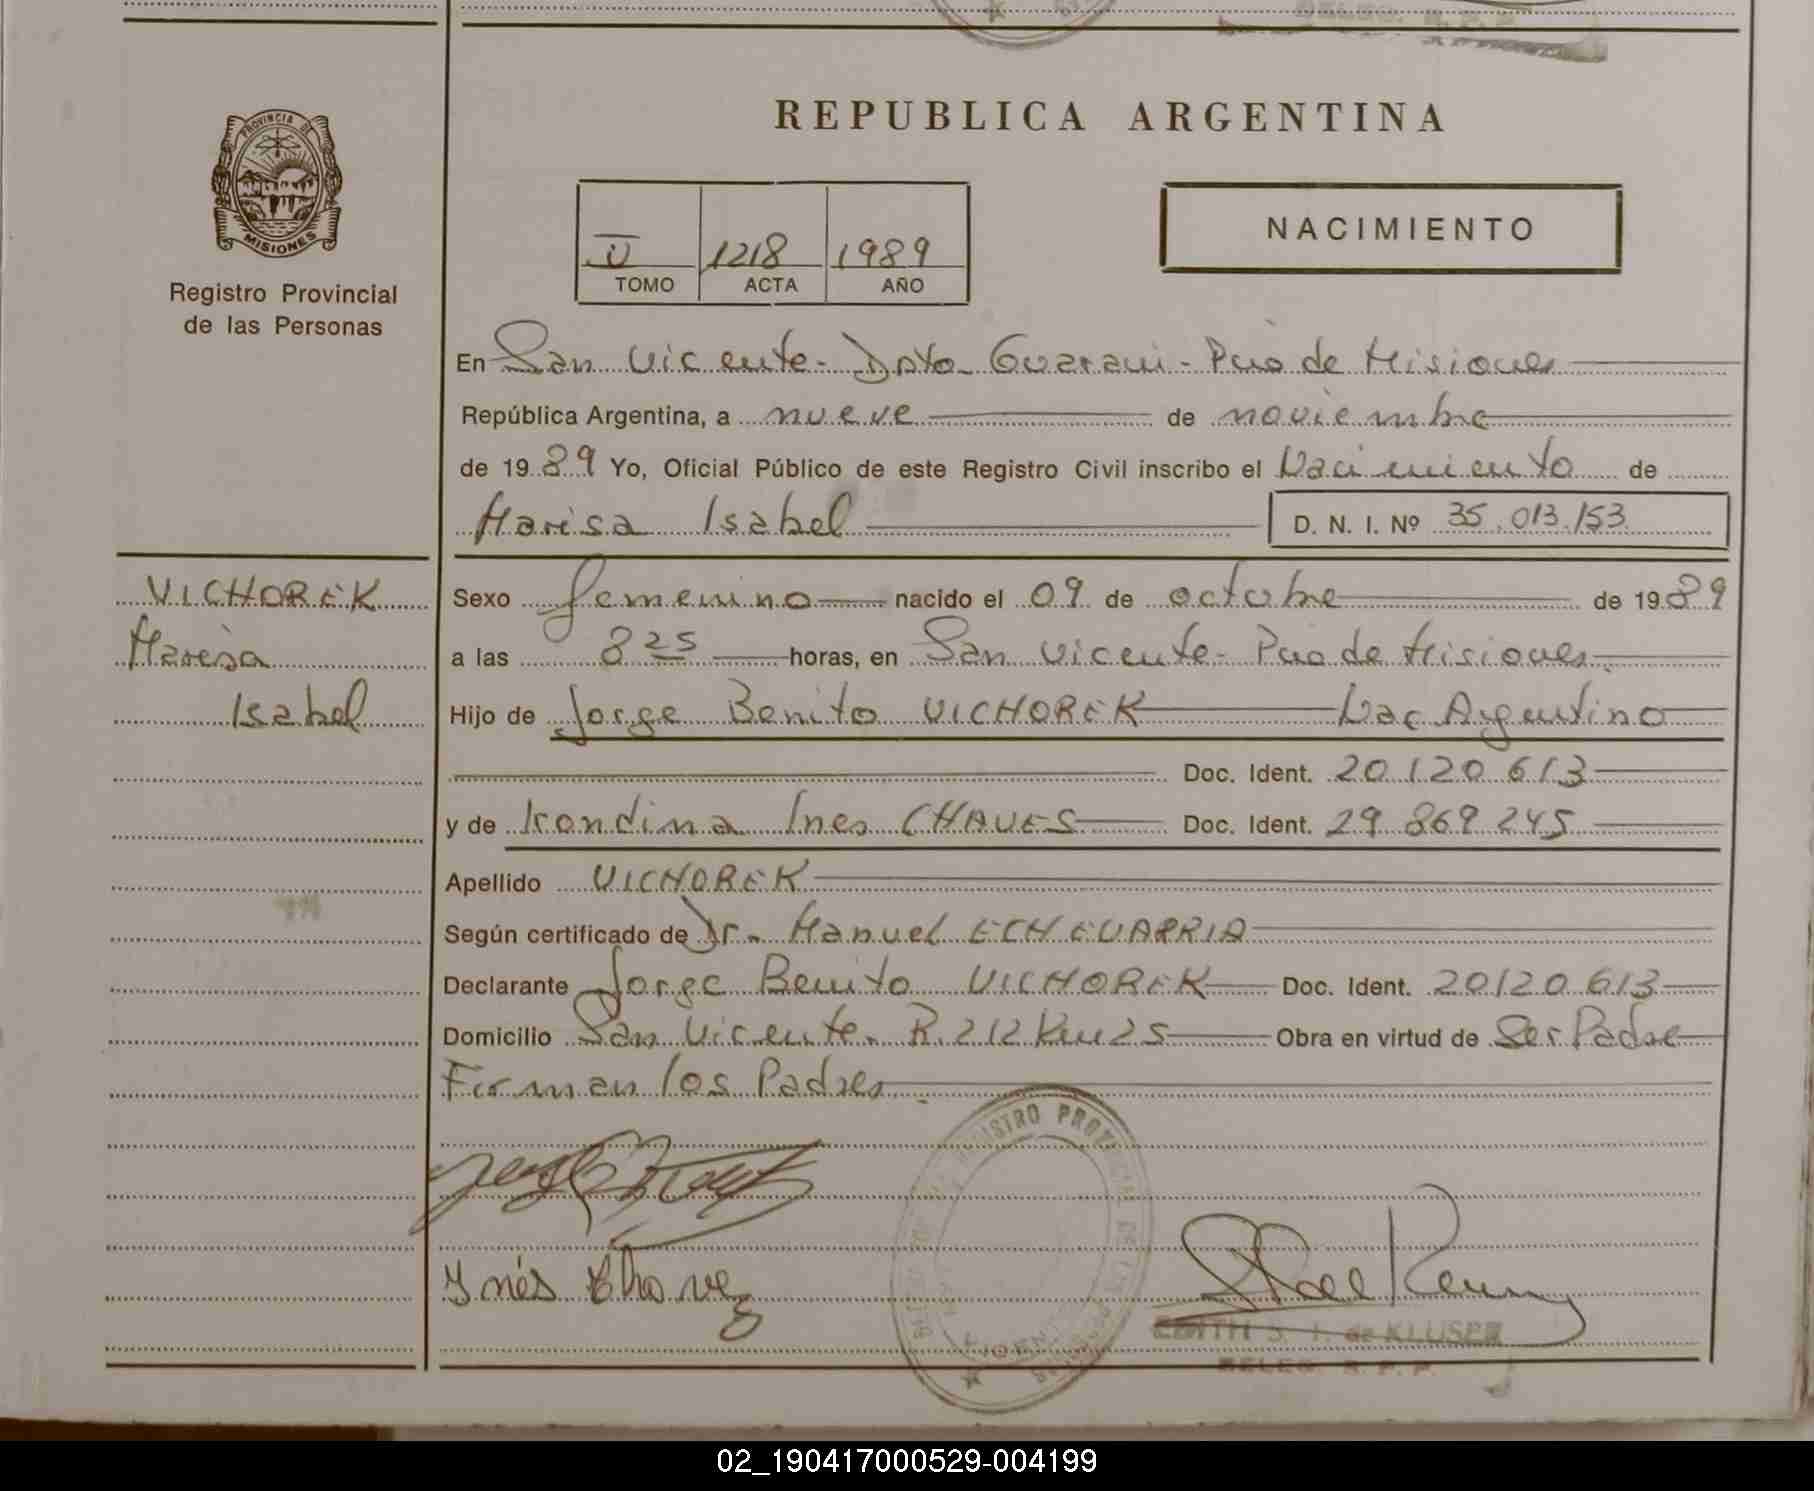 REPUBLICA ARGENTINA
PROVINCIA DE
MISIONES
Registro Provincial
de las Personas
NACIMIENTO
1218 1989
TOMO ACTA AÑO
En San Vicente - Dpto. Guarani - Pcia de Misiones
República Argentina, a nueve de noviembre
de 1989 Yo, Oficial Público de este Registro Civil inscribo el Nacimiento de
Marisa Isabel D. N. I. Nº 35.013.153
VICHOREK
Marisa
Isabel
Sexo femenino nacido el 09 de octubre de 1989
a las 8 25 horas, en San Vicente - Pcia de Misiones.
Hijo de Jorge Benito VICHOREK Nac Argentino
Doc. Ident. 20 120 613
y de Ines CHAVES Doc. Ident. 29 869 245
Apellido VICHOREK
Según certificado de Dr. Manuel ECHEVARRIA
Declarante Jorge Benito VICHOREK Doc. Ident. 20120 613
Domicilio San Vicente. R. 212 Km 25 Obra en virtud de Ser Padre
Firman los Padres
REGISTRO PROVINCIAL DE LAS PERSONAS
Ynés Chavez
EDITH S. I. de KLUSER
DELEG. R. P. P.
02_190417000529-004199